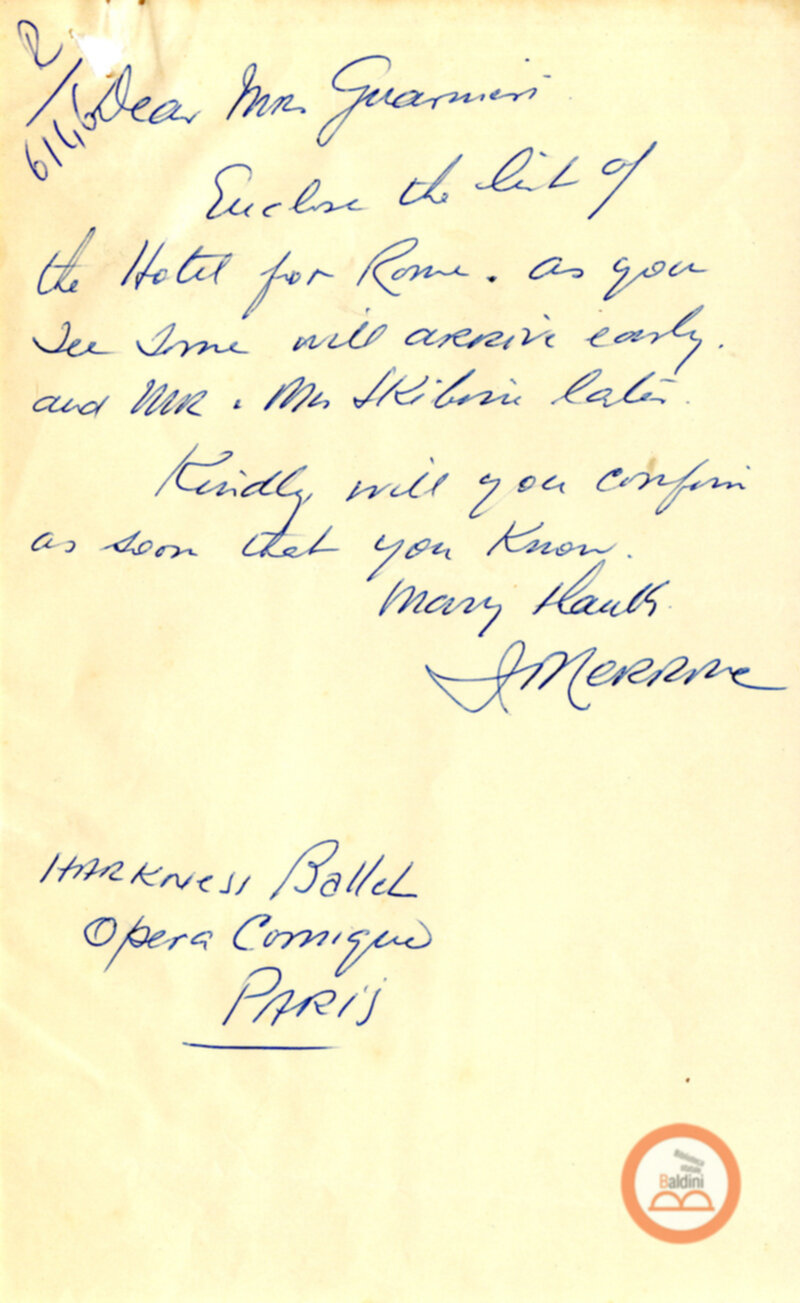 R/6146
Dear Mrs Guarnieri
Enclose the list of
the Hotel for Rome. as you
see some will arrive early.
and MR. Mrs Skibine later.
Kindly will you confirm
as soon that you know.
Many thanks
HARKNESS Ballet
Opera Comique
PARIS
Biblioteca
statale
Baldini